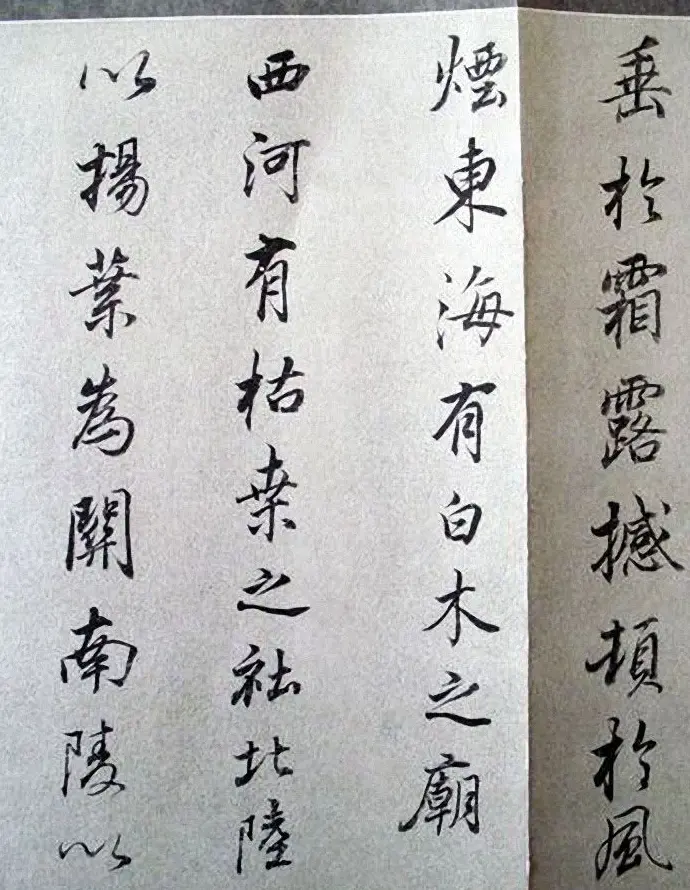 垂於霜露撼頓於風
煙東海有白木之廟
西河有枯桒之社北陸
以揚葉為關南陵以